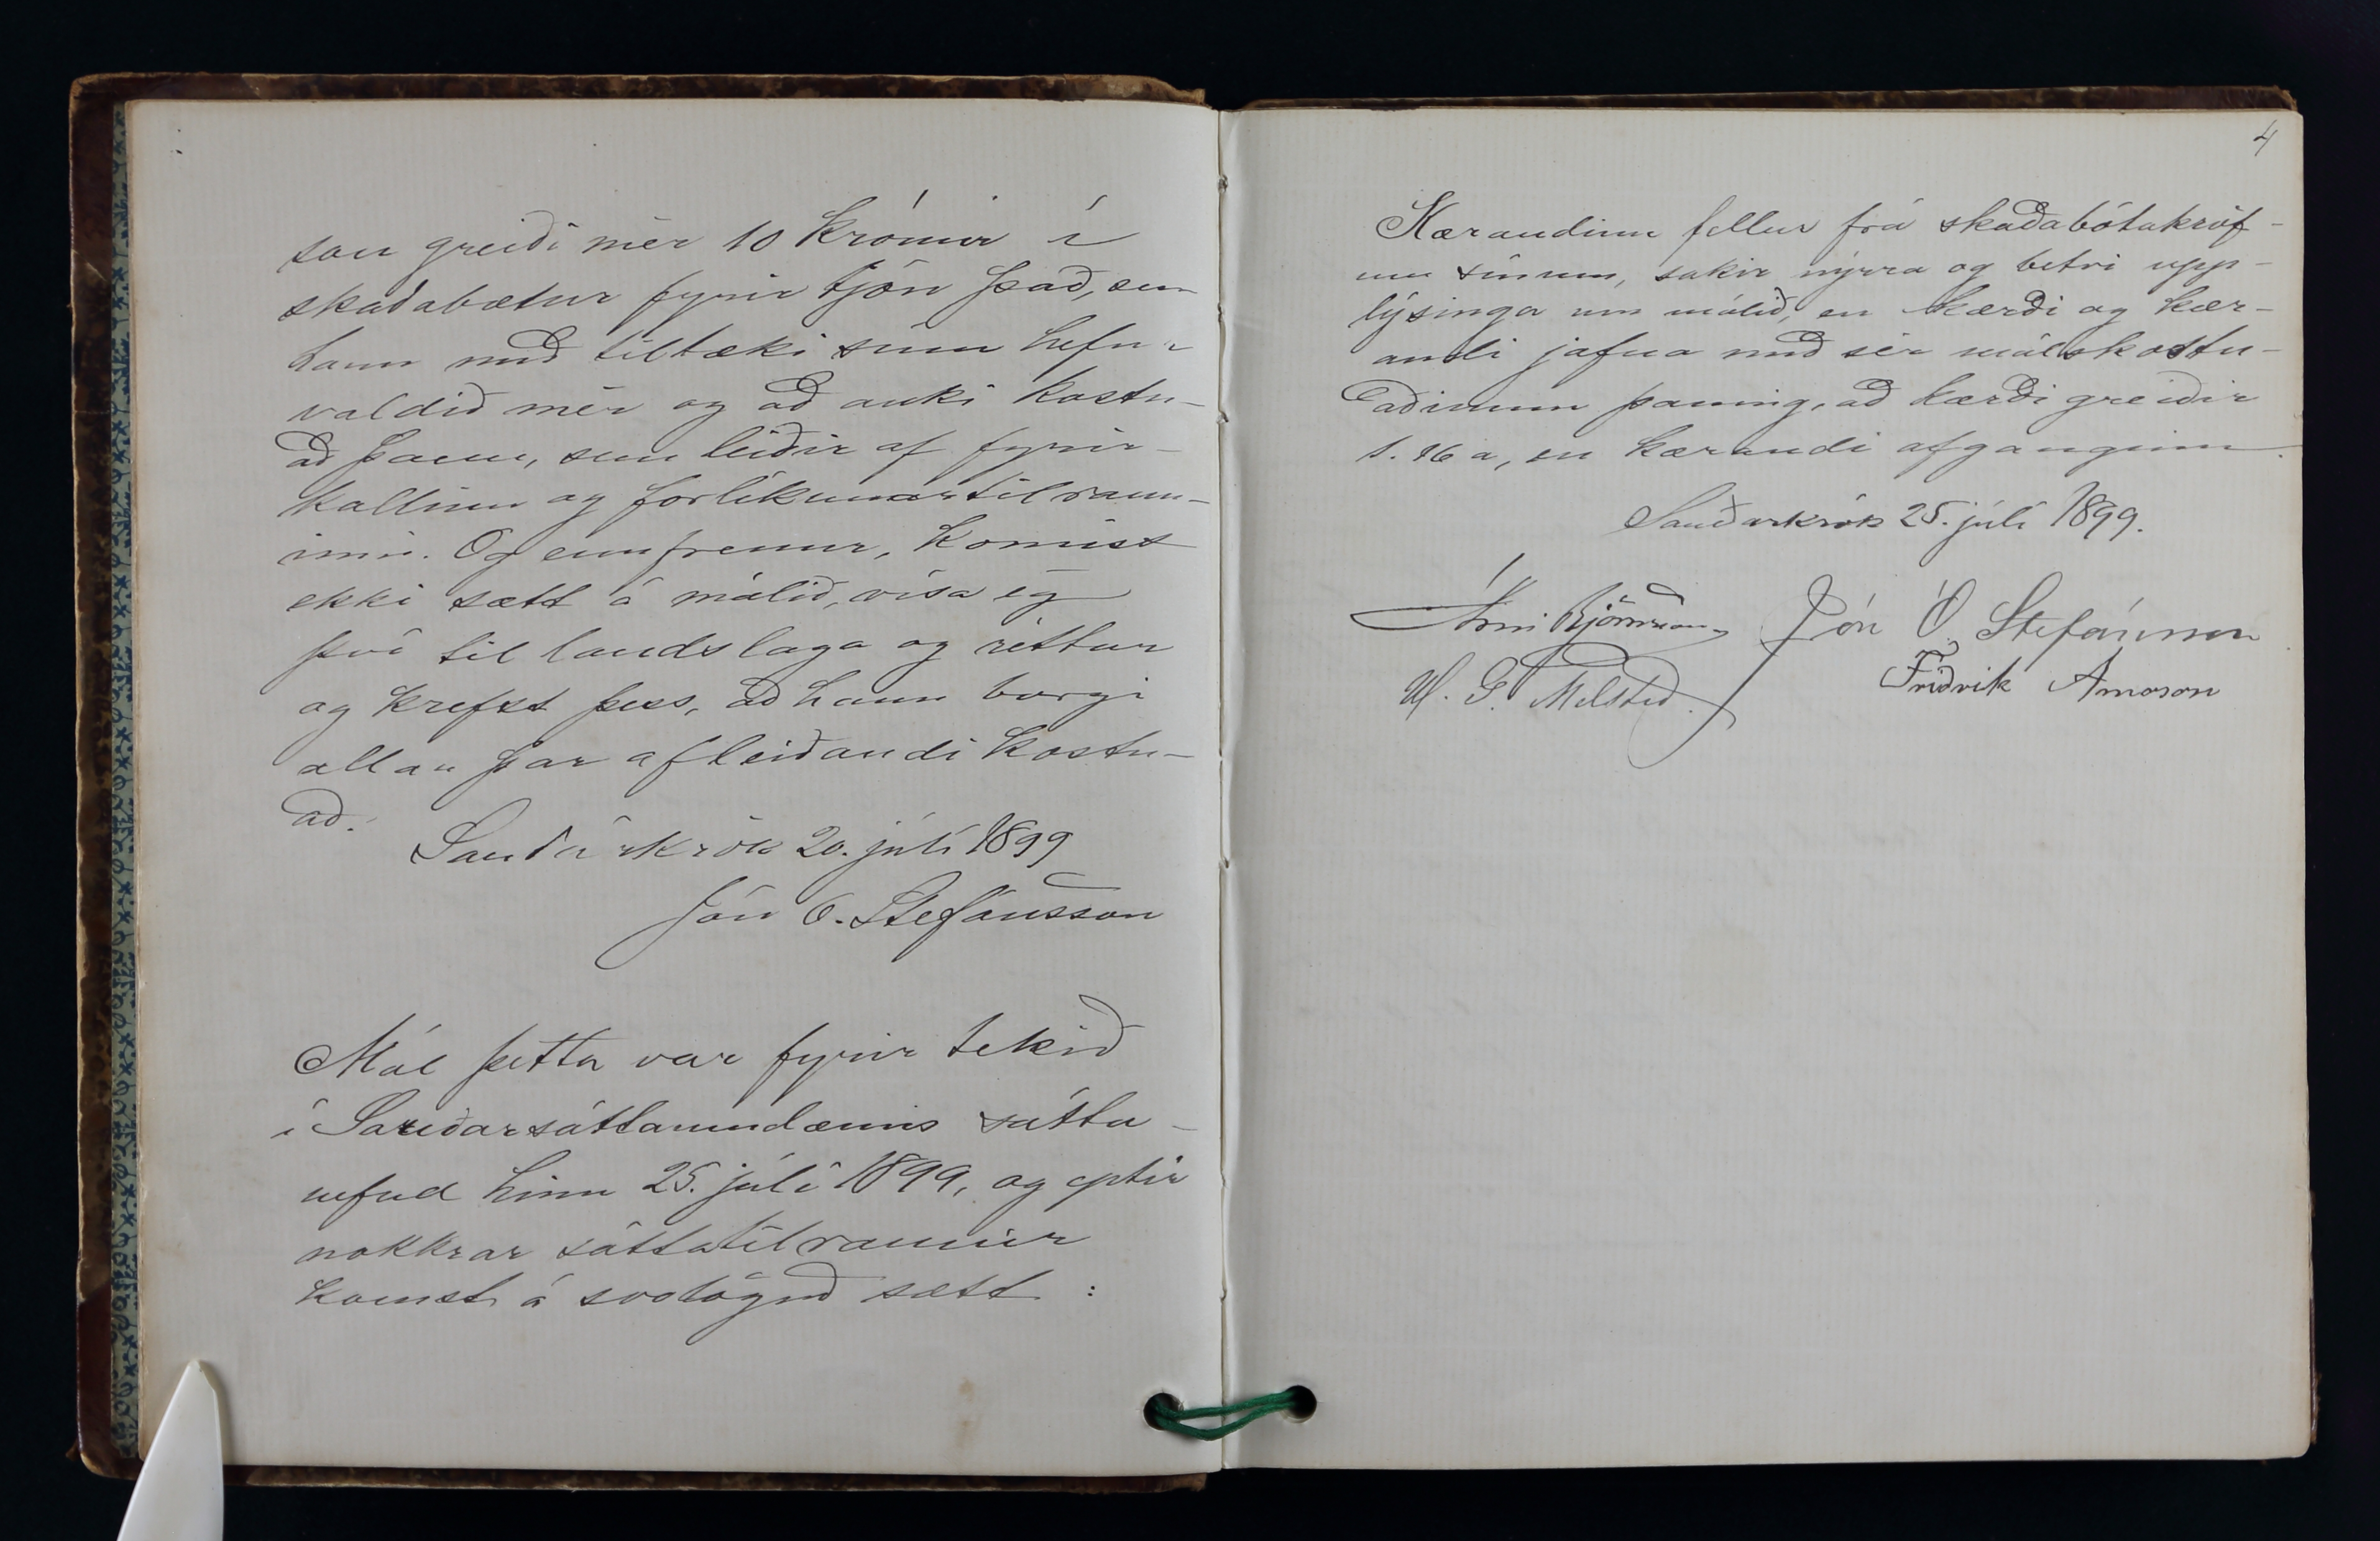 son greiði mér 10 krónur í
skaðabætur fyrir tjón það, sem
hann með tiltæki sínu hefur
valdið mér og að auki kostn-
að þann, sem leiðir af fyrir-
kallinu og forlíkunartilraun-
inni. Og ennfremur, komist
ekki sætt á málið, vísa eg
því til landslaga og réttar
og krefst þess, að hann borgi
allan þar afleiðandi kostn-
að.
Sauðárkrók 20. júlí 1899
Jón O. Stefánsson
Mál þetta var fyrir tekið
í Sauðársáttaumdæmis sátta-
nefnd hinn 25. júlí 1899, og eptir
nokkrar sáttatilraunir
komst á svolögað sætt:
4
Kærandinn fellur frá skaðabótakröf-
um sínum, sakir nýrra og betri upp-
lýsinga um málið, en kærði og kær-
andi jafna með sér málskostn-
aðinum þannig, að kærði greiðir
1. 16 a, en kærandi afganginn.
Sauðárkrók 25. júlí 1899.
Árni Björnsson Jón Ó. Stefánsson
Friðrik Árnason
P. Melsteð.